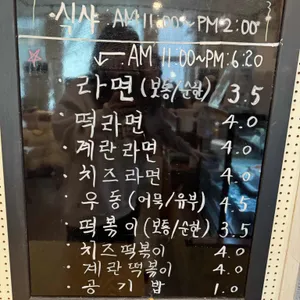 · 식사 : AM 11:00~PM 2:00
↙ : AM 11:00~PM:6:20
· 라면 (보통/순한) 3.5
· 떡라면 4.0
· 계란라면 4.0
· 치즈라면 4.0
· 우동 (어묵/유부) 4.5
· 떡볶이 (보통/순한) 3.5
· 치즈떡볶이 4.0
· 계란떡볶이 4.0
· 공기밥 1.0